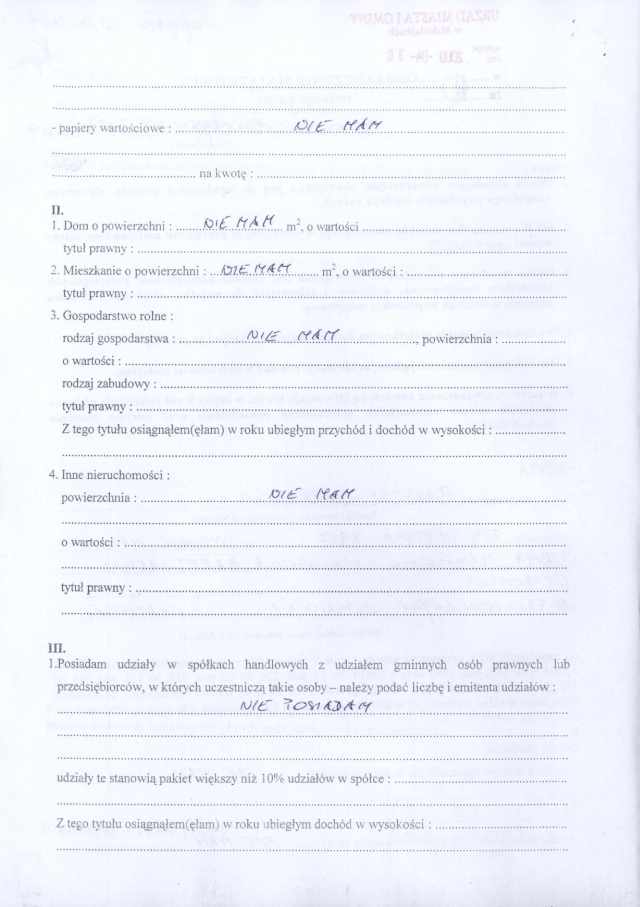 - papiery wartościowe : NIE MAM
na kwotę :
II.
1. Dom o powierzchni : NIE MAM m², o wartości
tytuł prawny :
2. Mieszkanie o powierzchni : NIE MAM m², o wartości :
tytuł prawny :
3. Gospodarstwo rolne :
rodzaj gospodarstwa : NIE MAM, powierzchnia :
o wartości :
rodzaj zabudowy :
tytuł prawny :
Z tego tytułu osiągnąłem(ęłam) w roku ubiegłym przychód i dochód w wysokości :
4. Inne nieruchomości :
powierzchnia : NIE MAM
o wartości :
tytuł prawny :
III.
1.Posiadam udziały w spółkach handlowych z udziałem gminnych osób prawnych lub
przedsiębiorców, w których uczestniczą takie osoby – należy podać liczbę i emitenta udziałów :
NIE POSIADAM
udziały te stanowią pakiet większy niż 10% udziałów w spółce :
Z tego tytułu osiągnąłem(ęłam) w roku ubiegłym dochód w wysokości :